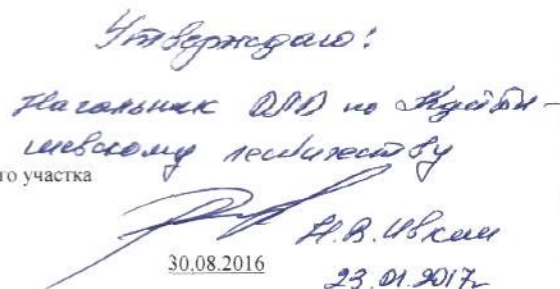 Утверждаю!
Начальник ОЛВ по Куйбы-
шевскому лесничеству
го участка
Н.В. Ивкин
30.08.2016
23.01.2017г